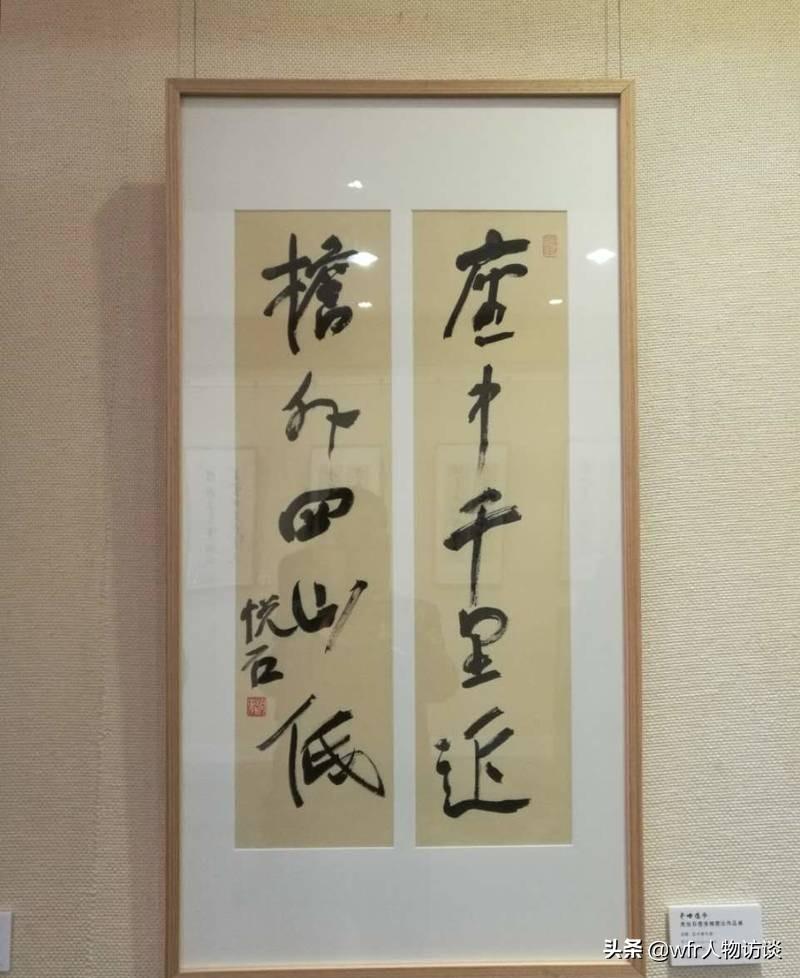 座中千里近
檐外四山低
悦石
头条 @wfr人物访谈